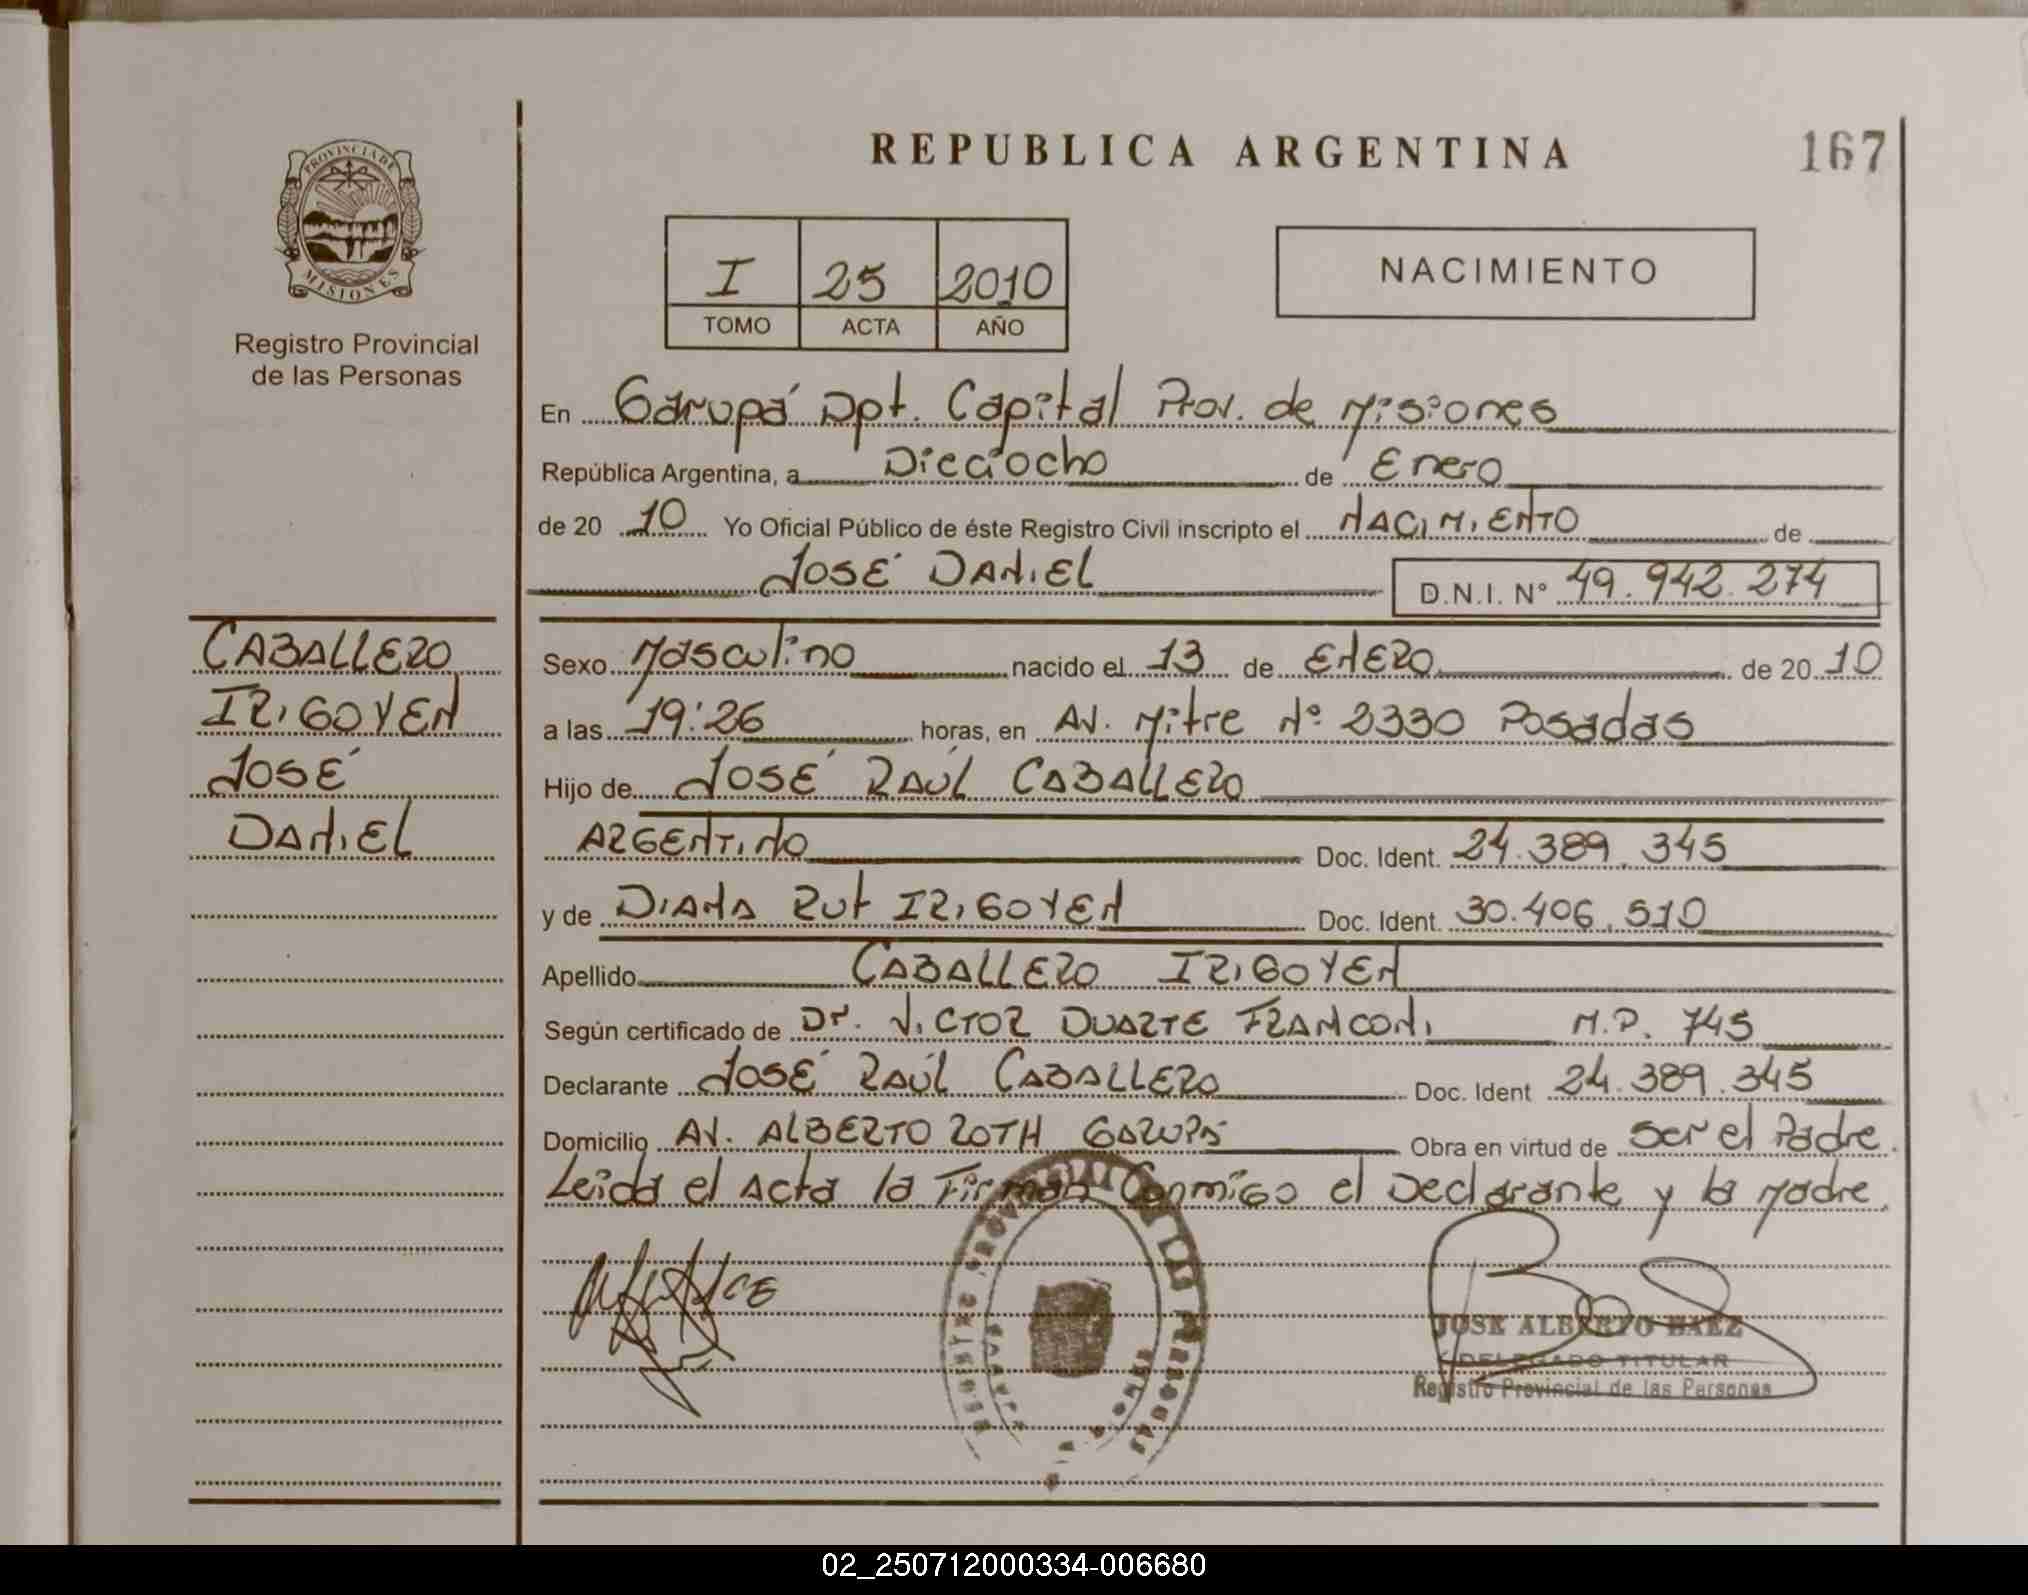 REPUBLICA ARGENTINA
167
PROVINCIA DE
MISIONES
Registro Provincial
de las Personas
I 25 2010
TOMO ACTA AÑO
NACIMIENTO
En Garupá Dpt. Capital Prov. de Misiones
República Argentina, a Dieciocho de Enero
de 20 10 Yo Oficial Público de éste Registro Civil inscripto el NACIMIENTO de
JOSÉ DANIEL D.N.I. N° 49.942.274
CABALLERO
IRIGOYEN
JOSÉ
DANIEL
Sexo Masculino nacido el 13 de ENERO de 20 10
a las 19:26 horas, en AV. Mitre N° 2330 Posadas
Hijo de JOSÉ RAÚL CABALLERO
ARGENTINO Doc. Ident. 24.389.345
y de DIANA RUT IRIGOYEN Doc. Ident. 30.406.510
Apellido CABALLERO IRIGOYEN
Según certificado de Dr. VICTOR DUARTE FRANCONI M.P. 745
Declarante JOSÉ RAÚL CABALLERO Doc. Ident 24.389.345
Domicilio AV. ALBERTO ROTH GARUPA Obra en virtud de ser el Padre.
Leida el Acta la Firman Conmigo el Declarante y la Madre.
JOSE ALBERTO BAEZ
DELEGADO TITULAR
Registro Provincial de las Personas
02_250712000334-006680